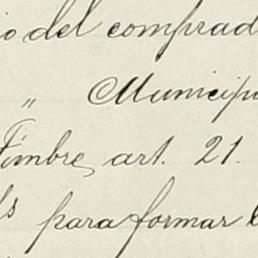 io del comprad
" Municipi
Timbre, art. 21.
para formar